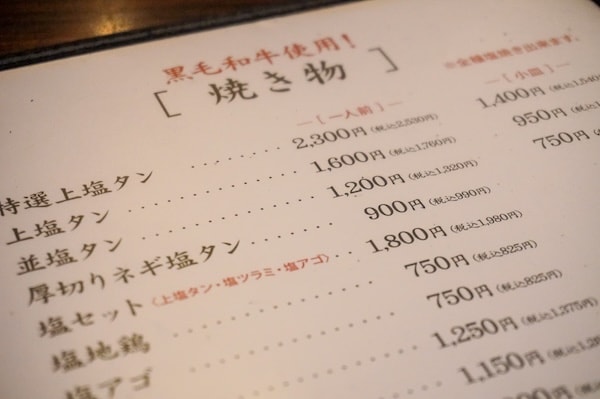 黒毛和牛使用!
[ 焼き物 ]
※全種塩焼き出来ます。
―[一人前]―
―[小皿]―
特選上塩タン ・・・・・・・ 2,300円(税込2,530円) 1,400円(税込1,540
上塩タン ・・・・・・・・・ 1,600円(税込1,760円) 950円(税込
並塩タン ・・・・・・・・・ 1,200円(税込1,320円) 750円(税込
厚切りネギ塩タン ・・・・・・・ 900円(税込990円)
塩セット〈上塩タン・塩ツラミ・塩アゴ〉・・・ 1,800円(税込1,980円)
塩地鶏 ・・・・・・・・・・ 750円(税込825円)
塩アゴ ・・・・・・・・・・ 750円(税込825円)
1,250円(税込1,375円)
1,150円(税込